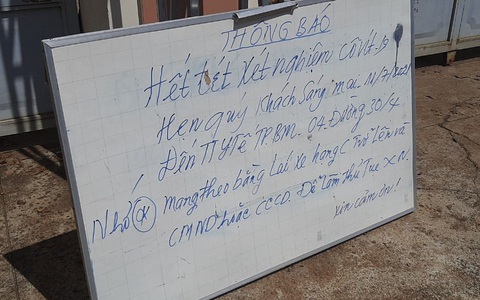 THÔNG BÁO
Hết tét Xét nghiệm Côvít-19
Hẹn quý Khách Sáng mai. 11/7/2021
Đến TTYTế TP.BM. 04. Đường 30/4
Nhớ (*) Mang theo bằng Lái Xe hạng C Trở Lên và
CMND hoặc CCCD. Để làm thủ Tục XN.
xin cảm ơn!